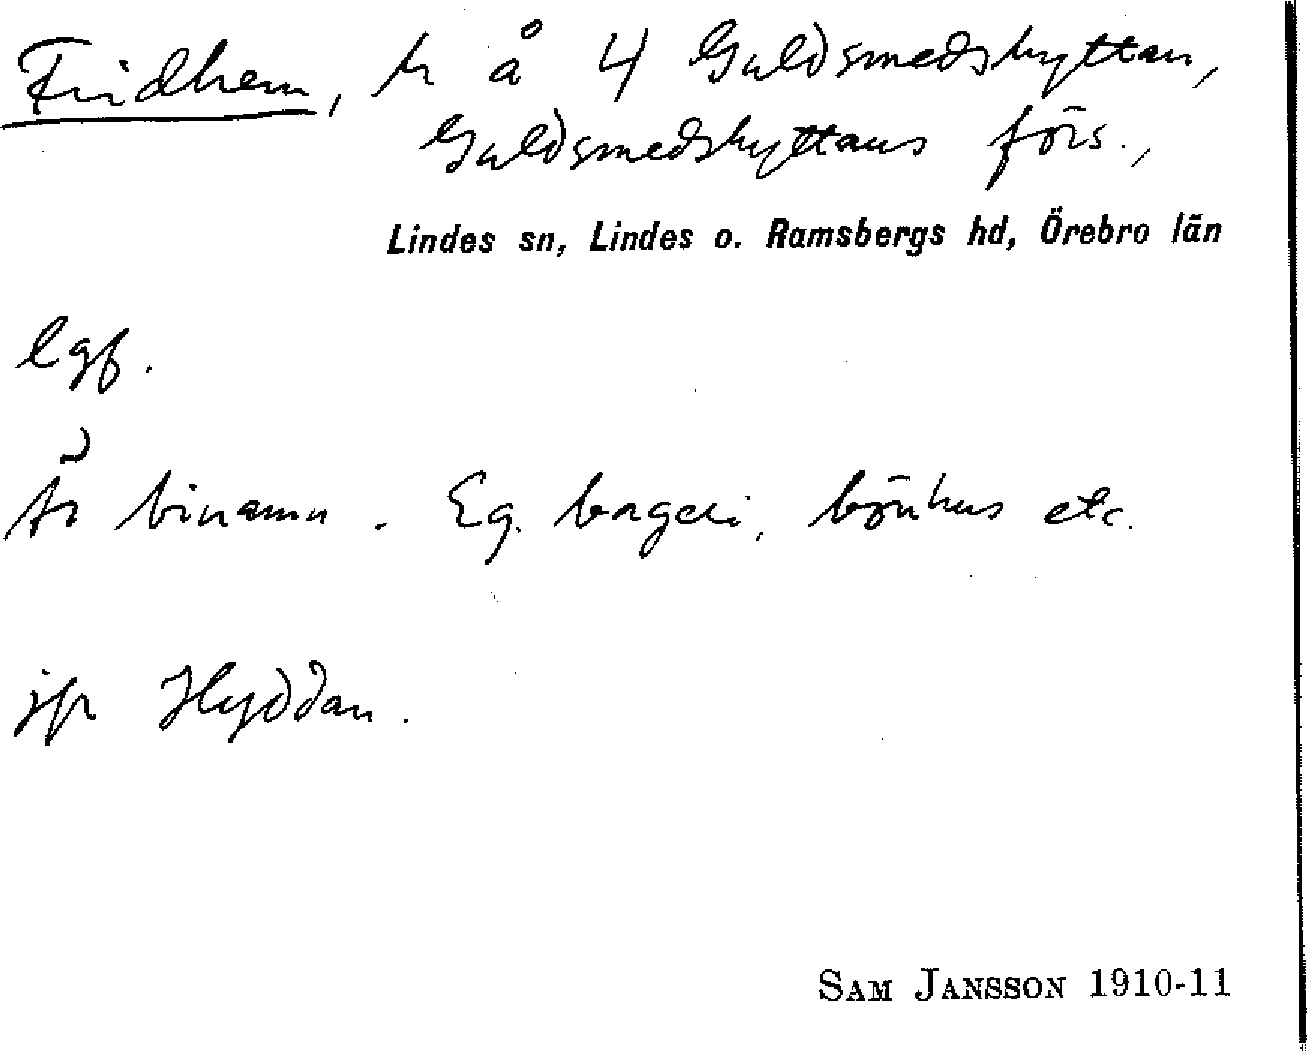 Fridhem, tr å 4 Guldsmedshyttan,
Guldsmedshyttans förs.,
Lindes sn, Lindes o. Ramsbergs hd, Örebro län
lgf.
Är binamn. Eg. bageri, bönhus etc.
jfr Hyddan.
SAM JANSSON 1910-11